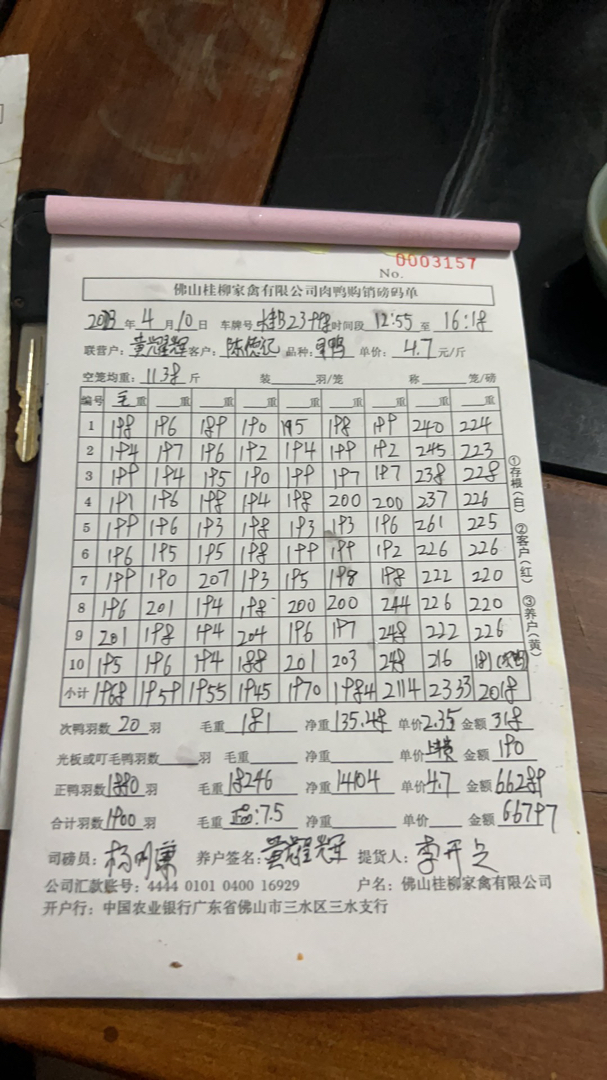 No. 0003157
佛山桂柳家禽有限公司肉鸭购销磅码单
2023年 4月 10日 车牌号 时间段 12:55 至 16:18
联营户: 黄耀辉 客户: 陈德记 品种: 鸭 单价: 4.7 元/斤
空笼均重: 11.38 斤 装 羽/笼 称 笼/磅
编号 毛重 重 重 重 重 重 重 重 重
1 198 196 189 190 195 198 199 240 224
2 194 197 196 192 194 199 192 245 223
3 199 194 195 190 199 197 197 238 228
4 191 196 198 194 198 200 200 237 226
5 199 196 193 198 193 193 196 261 225
6 196 195 195 198 199 199 192 226 226
7 199 190 207 193 195 198 198 222 220
8 196 201 194 198 200 200 244 226 220
9 201 198 194 204 196 197 248 222 226
10 195 196 194 188 201 203 248 216 181
小计 1968 1959 1955 1945 1970 1984 2114 2333 2018
①存根(白) ②客户(红) ③养户(黄)
次鸭羽数 20 羽 毛重 181 净重 135.48 单价 2.35 金额 318
光板或叮毛鸭羽数 羽 毛重 净重 单价 金额 190
正鸭羽数 1880 羽 毛重 18246 净重 14104 单价 4.7 金额 66289
合计羽数 1900 羽 毛重 :7.5 净重 单价 金额 66797
司磅员: 养户签名: 黄耀辉 提货人:
公司汇款账号: 4444 0101 0400 16929 户名: 佛山桂柳家禽有限公司
开户行: 中国农业银行广东省佛山市三水区三水支行